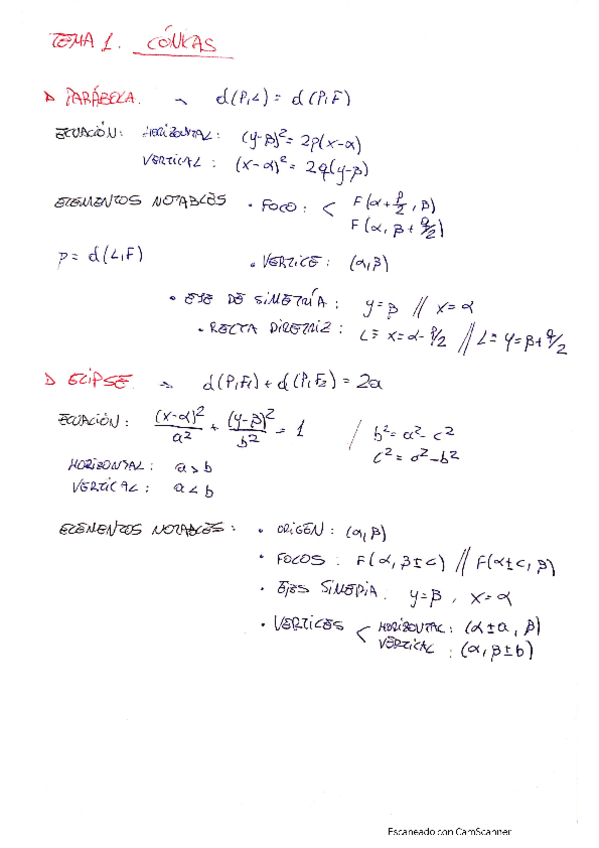 TEMA 1. CÓNICAS
▷ PARÁBOLA. ~ d(P,L) = d(P,F)
ECUACIÓN: HORIZONTAL: (y-β)² = 2p(x-α)
VERTICAL: (x-α)² = 2q(y-β)
ELEMENTOS NOTABLES • FOCO: < F(α+p/2, β)
F(α, β+q/2)
p = d(L,F) • VERTICE: (α,β)
• EJE DE SIMETRÍA: y=β // x=α
• RECTA DIRETRIZ: L≡ x=α-p/2 // L≡ y=β+q/2
▷ ELIPSE. ~ d(P,F1)+d(P,F2) = 2a
ECUACIÓN: (x-α)²/a² + (y-β)²/b² = 1 / b²=a²-c²
c²=a²-b²
HORIZONTAL: a>b
VERTICAL: a<b
ELEMENTOS NOTABLES: • ORIGEN: (α,β)
• FOCOS: F(α, β±c) // F(α±c, β)
• EJES SIMETRIA: y=β, x=α
• VERTICES < HORIZONTAL: (α±a, β)
VERTICAL: (α, β±b)
Escaneado con CamScanner